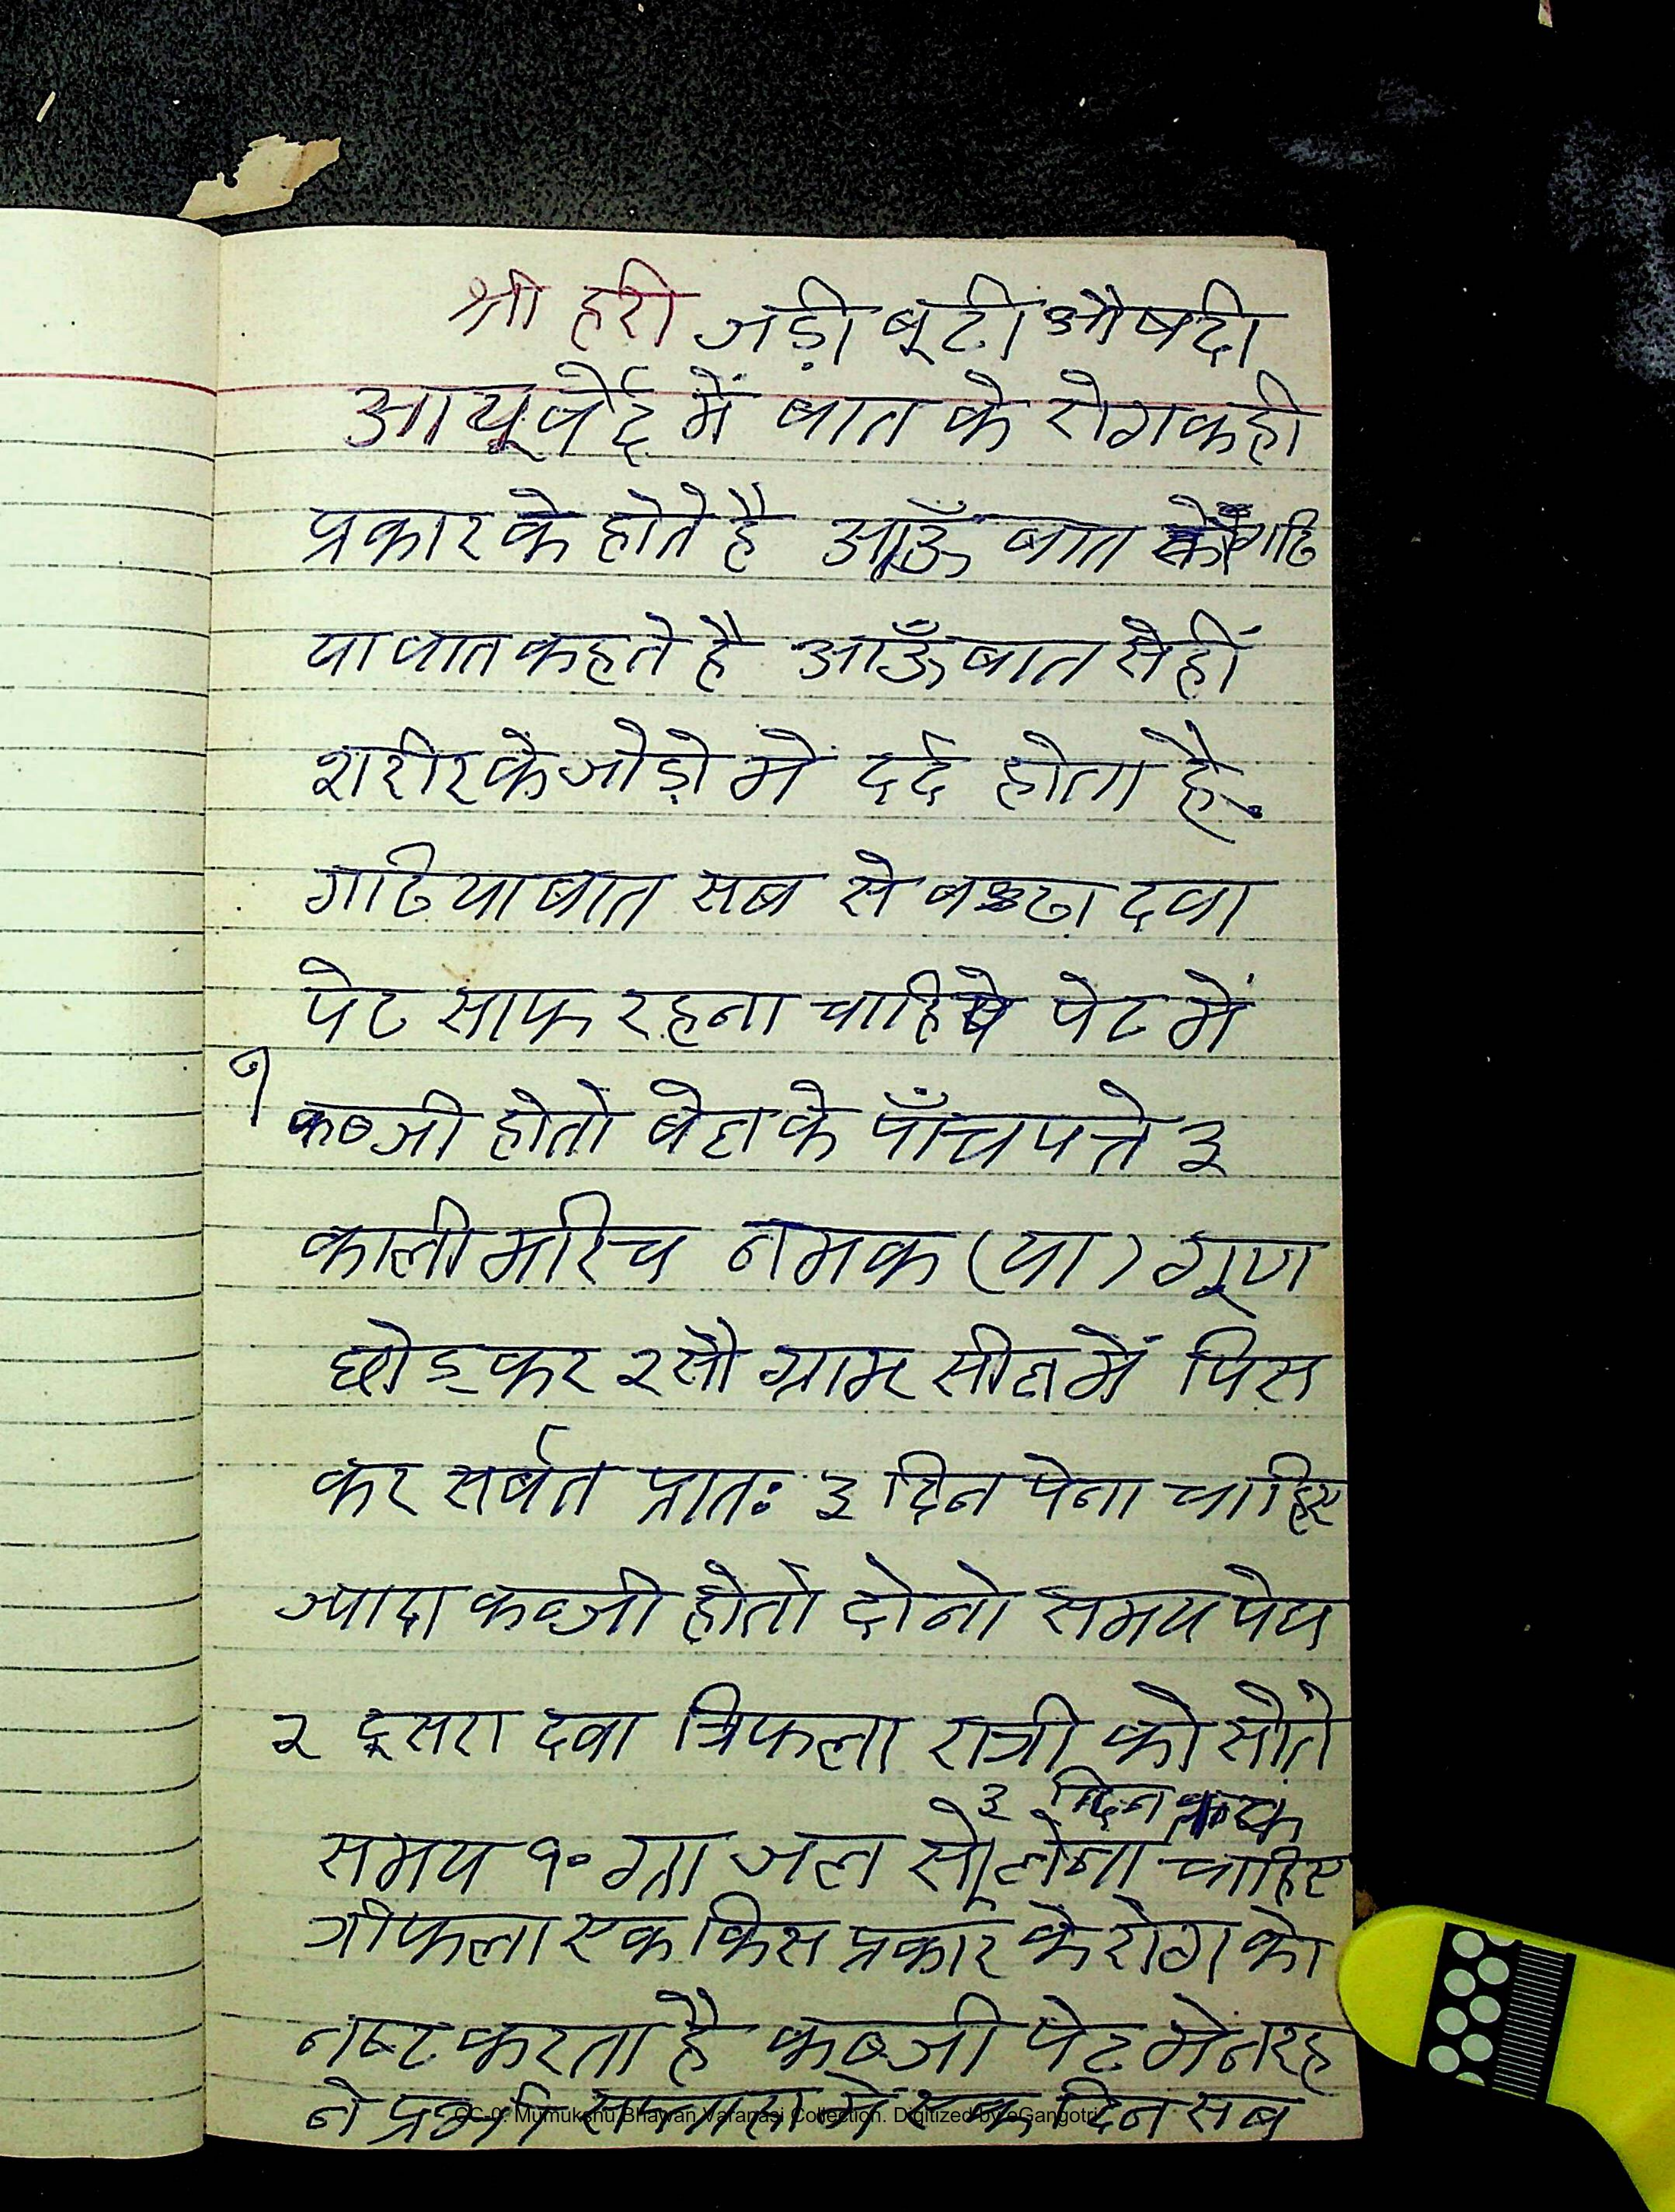 श्री हरी जड़ी बूटी औषदी
आयूर्वेद में बात के रोग कही
प्रकार के होते है आऊँ बात को गठि
या वात कहते है आऊँ बात से हीं
शरीर के जोड़ो में दर्द होता है.
गठिया बात सब से दवा
पेट साफ रहना चाहिये पेट में
१ कब्जी होतो बेल के पाँच पत्ते ३
काली मरिच नमक (या) गूण
छोड़कर २ सौ ग्राम सील में पिस
कर सर्बत प्रातः ३ दिन पेना चाहिए
ज्यादा कब्जी होतो दोनो समय पेय
२ दूसरा दवा त्रिफला रात्री को सोते
३ दिन तक
समय १० ग्रा जल से लेना चाहिए
त्रीफला एक किस प्रकार के रोग को
नष्ट करता है कब्जी पेट मे न रह
ने सप्ताह में एक दिन सब
CC-0. Mumukshu Bhawan Varanasi Collection. Digitized by eGangotri